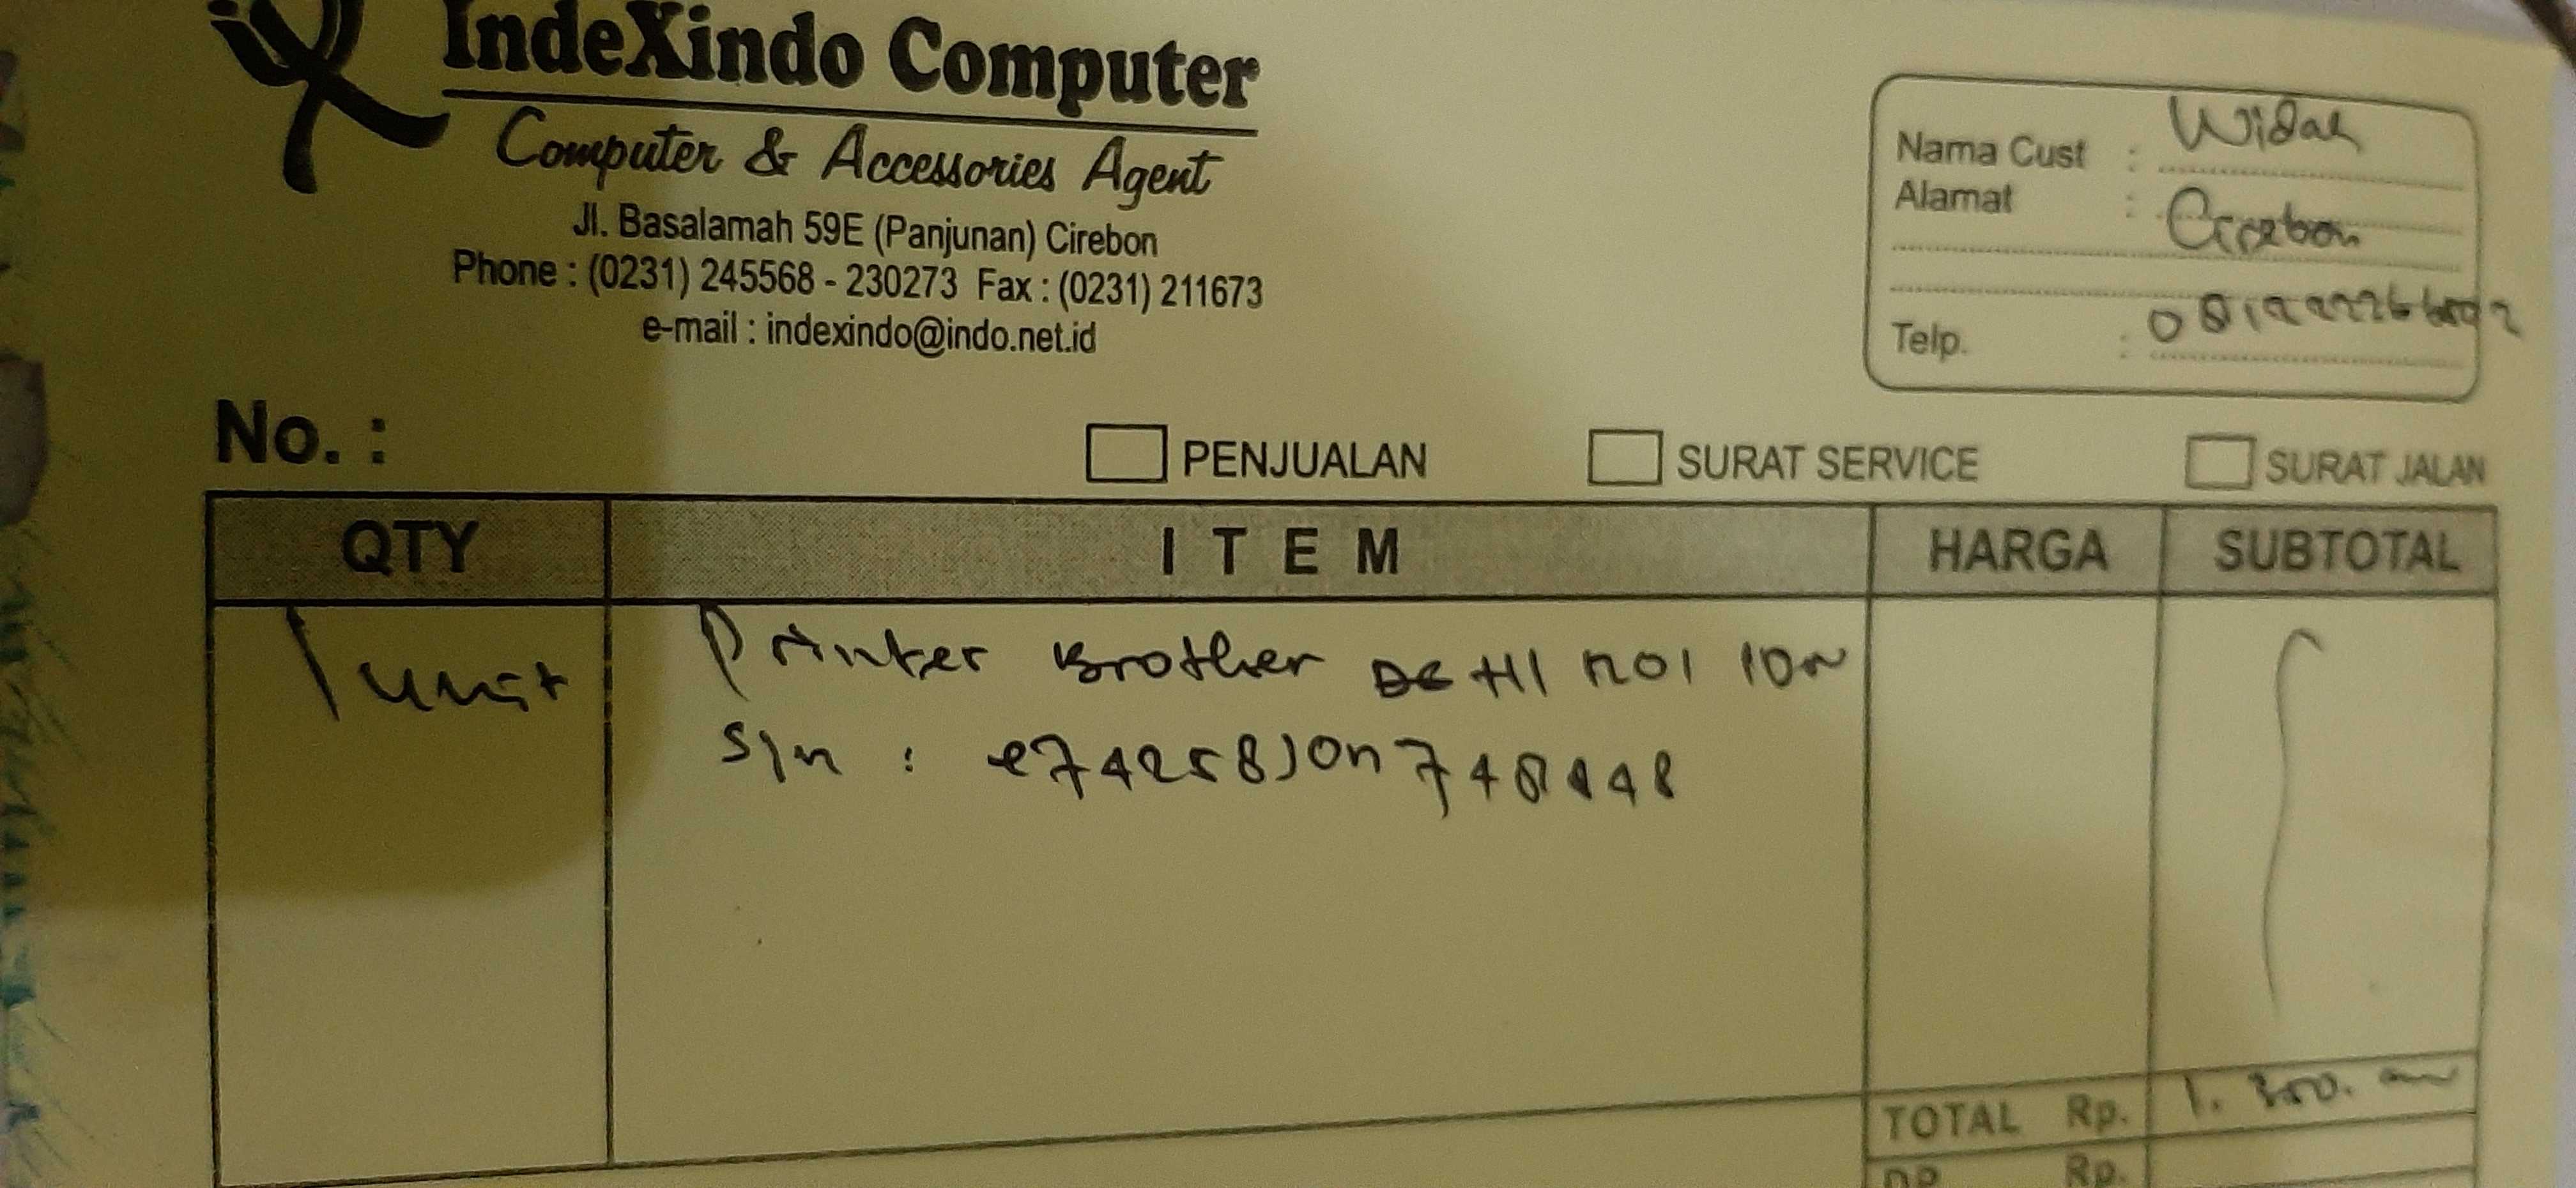 IndeXindo Computer
Computer & Accessories Agent
Jl. Basalamah 59E (Panjunan) Cirebon
Phone : (0231) 245568 - 230273 Fax : (0231) 211673
e-mail : indexindo@indo.net.id
Nama Cust : Widah
Alamat : Cirebon
Telp. :
No. :
PENJUALAN SURAT SERVICE SURAT JALAN
QTY ITEM HARGA SUBTOTAL
1 unit Printer Brother
S/n :
TOTAL Rp.
DP Rp.